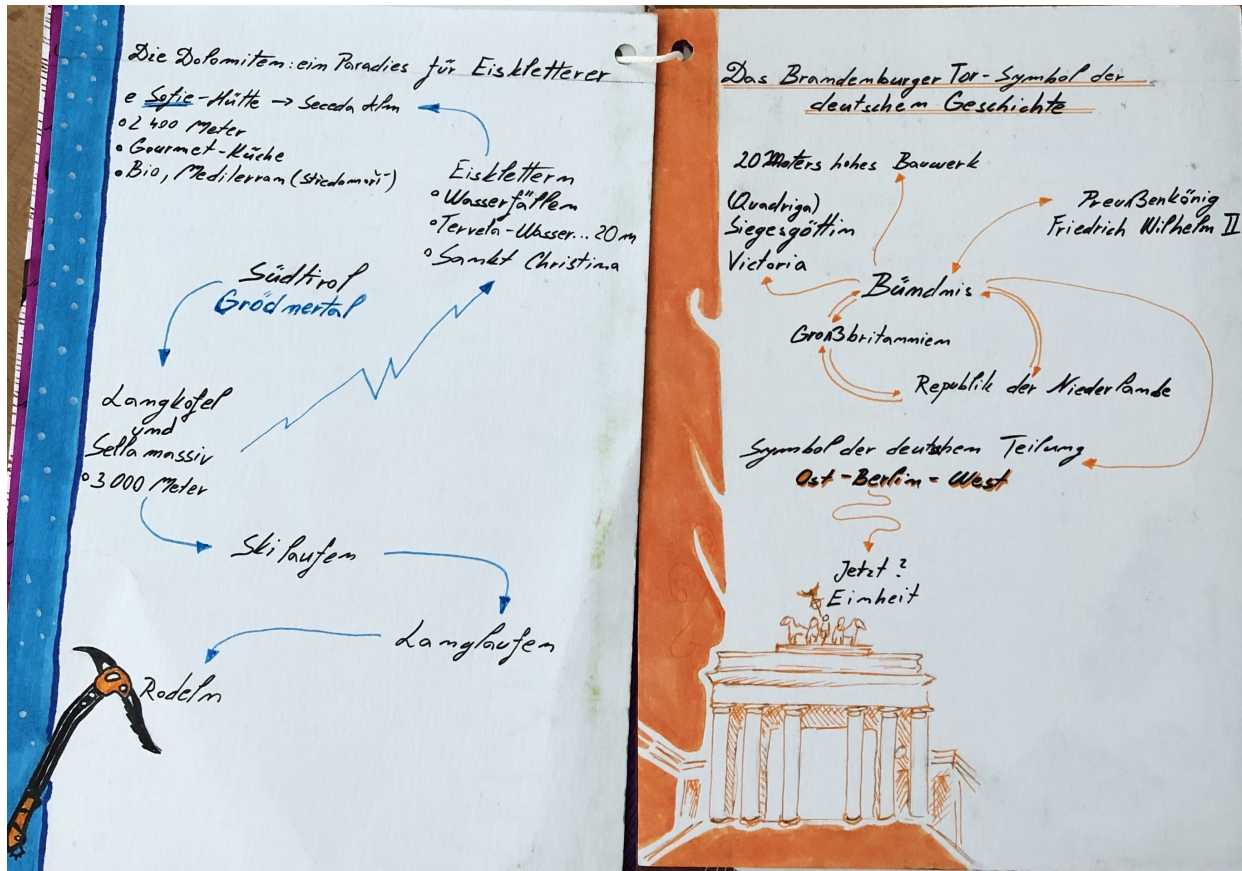 Die Dolomiten: ein Paradies für Eiskletterer
e Sofie-Hütte → Seceda Alm
2 400 Meter
Gourmet-Küche
Bio, Mediterran (Středomoří)
Eisklettern
Wasserfällen
Tervela-Wasser... 20 m
Sankt Christina
Südtirol
Grödnertal
Langkofel
und
Sella massiv
3 000 Meter
Skilaufen
Langlaufen
Rodeln
Das Brandenburger Tor - Symbol der
deutschen Geschichte
20 Meters hohes Bauwerk
(Quadriga)
Siegesgöttin
Victoria
Preußenkönig
Friedrich Wilhelm II
Bündnis
Großbritannien
Republik der Niederlande
Symbol der deutschen Teilung
Ost - Berlin - West
Jetzt?
Einheit